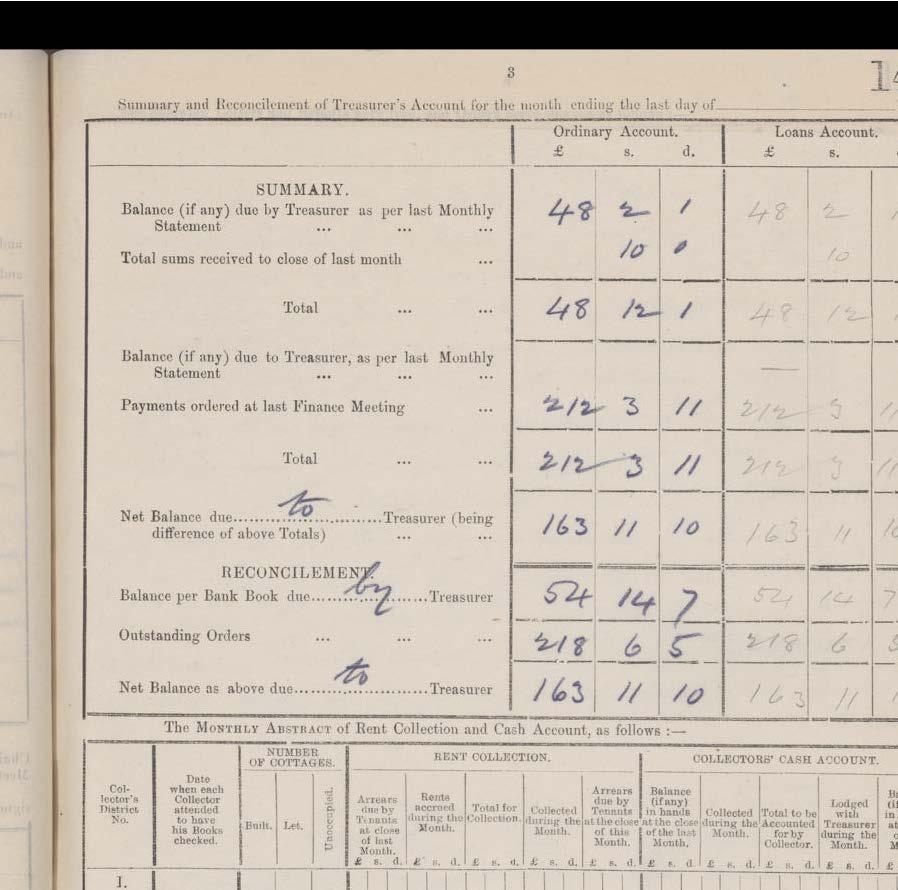 3
14
Summary and Reconcilement of Treasurer's Account for the month ending the last day of
Ordinary Account. Loans Account.
£ s. d. £ s.
SUMMARY.
Balance (if any) due by Treasurer as per last Monthly
Statement ... ... ... 48 2 1 48 2 1
Total sums received to close of last month ... 10 0 10
Total ... ... 48 12 1 48 12 1
Balance (if any) due to Treasurer, as per last Monthly
Statement ... ... ... —
Payments ordered at last Finance Meeting ... 212 3 11 212 3 11
Total ... ... 212 3 11 212 3 11
Net Balance due...to...Treasurer (being
difference of above Totals) ... ... 163 11 10 163 11 10
RECONCILEMENT.
Balance per Bank Book due...by...Treasurer 54 14 7 54 14 7
Outstanding Orders ... ... ... 218 6 5 218 6 5
Net Balance as above due...to...Treasurer 163 11 10 163 11 1
The MONTHLY ABSTRACT of Rent Collection and Cash Account, as follows :—
NUMBER
OF COTTAGES.
RENT COLLECTION.
COLLECTORS' CASH ACCOUNT.
Col-
lector's
District
No.
Date
when each
Collector
attended
to have
his Books
checked.
Built.
Let.
Unoccupied.
Arrears
due by
Tenants
at close
of last
Month.
Rents
accrued
during the
Month.
Total for
Collection.
Collected
during the
Month.
Arrears
due by
Tenants
at the close
of this
Month.
Balance
(if any)
in hands
at the close
of the last
Month.
Collected
during the
Month.
Total to be
Accounted
for by
Collector.
Lodged
with
Treasurer
during the
Month.
£ s. d. £ s. d. £ s. d. £ s. d. £ s. d. £ s. d. £ s. d. £ s. d. £ s. d.
I.